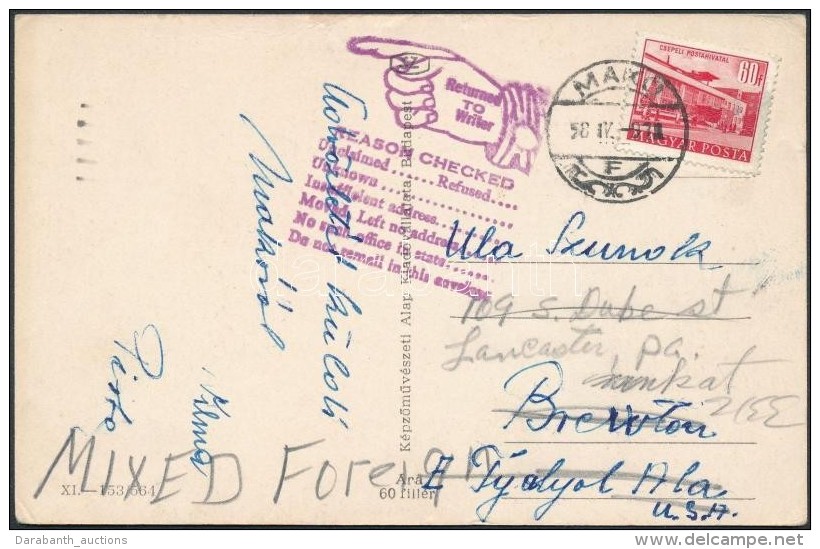 Üdvözletét küldi
Makóról
Vilma
Pista
MIXED Foreign
XI.—153,564
Képzőművészeti Alap Kiadóvállalata, Budapest
Ára
60 fillér
Returned
TO
Writer
REASON CHECKED
Unclaimed ...... Refused....
Unknown ..................
Insufficient address..........
Moved, Left no address
No such office in state......
Do not remail in this envelope
MAKÓ
58 IV.
F
CSEPELI POSTAHIVATAL
60f
MAGYAR POSTA
Ula
109 S. Duke st
Lancaster, pa.
Brewton
Ala
U.S.A.
Darabanth_auctions
delcampe.net